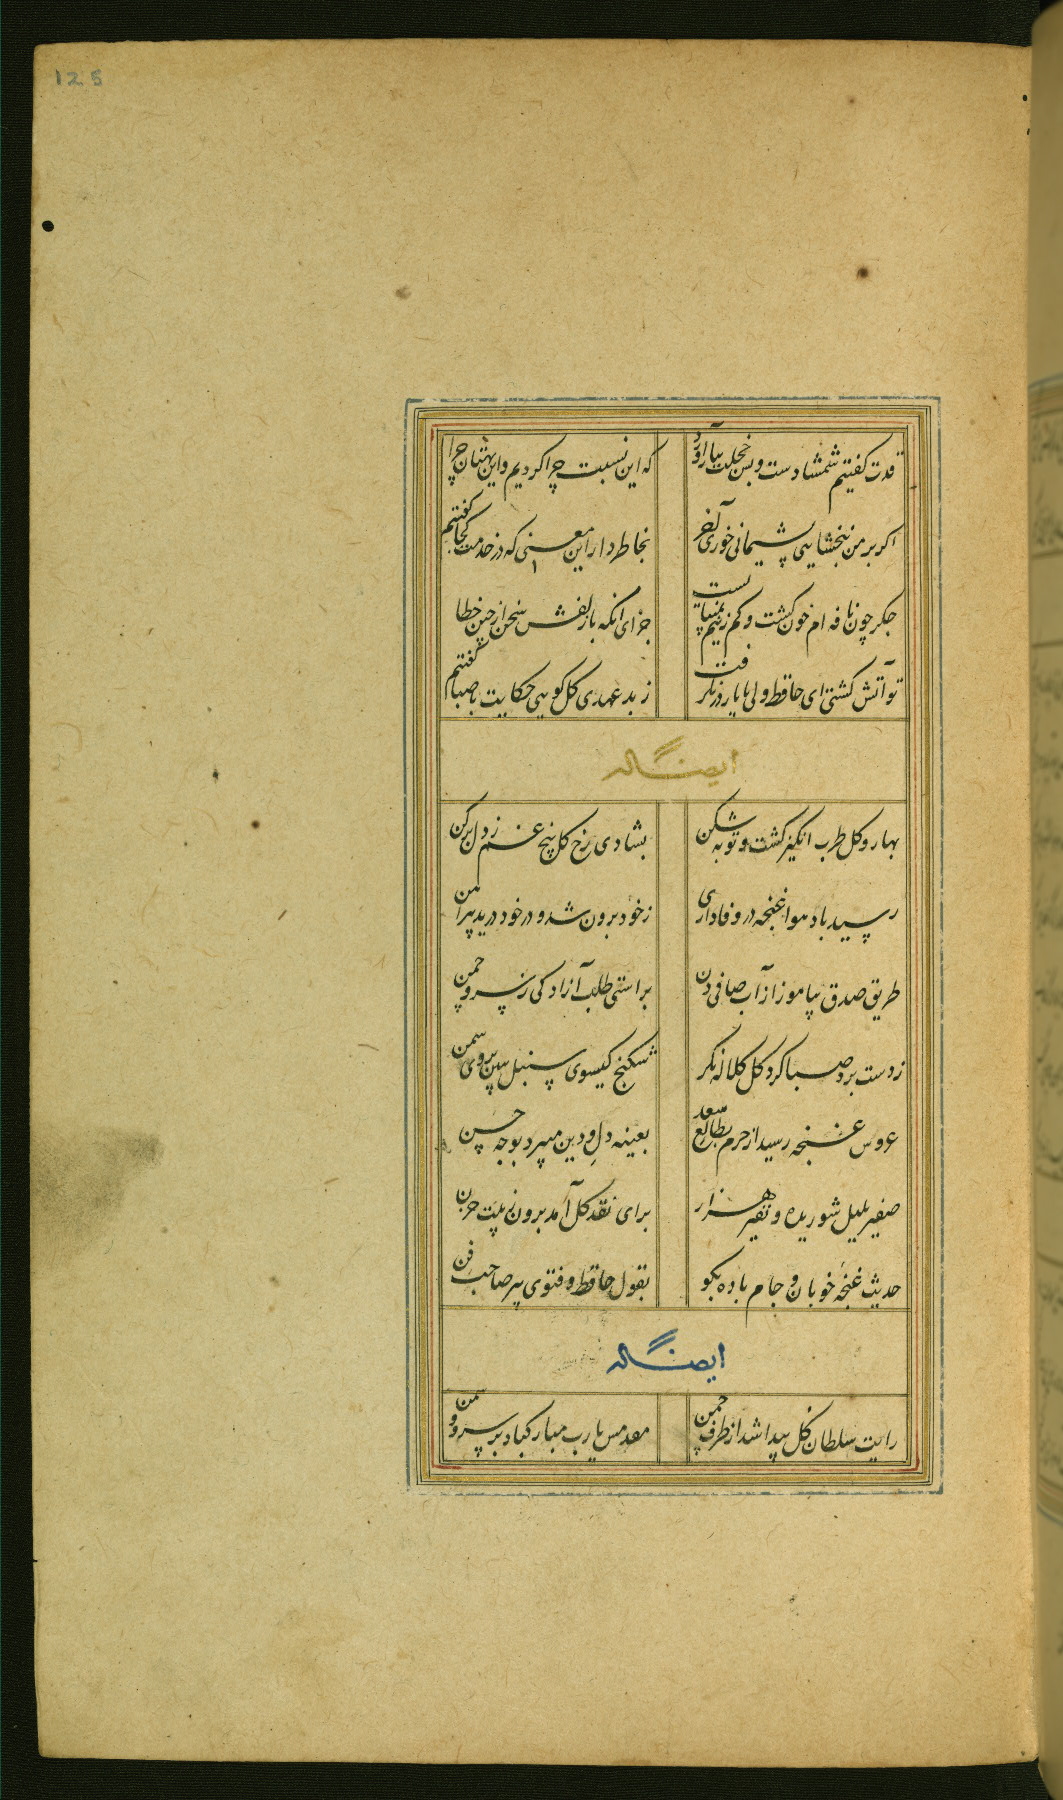 125
قدت گفتیم شمشادست و بس خجلت ببار آورد
که این نسبت چرا کردیم و این بهتان چرا گفتیم
اگر بر من نبخشایی پشیمانی خوری آخر
بخاطر دار این معنی که در خدمت کجا گفتیم
جگر چون نافه ام خون گشت و کم زینم نمیبایست
جزای انکه با زلفش سخن از چین خطا گفتیم
تو آتش گشتی ای حافظ ولی با یار در نگرفت
ز بد عهدی گل گویی حکایت با صبا گفتیم
ایضا له
بهار و گل طرب انگیز گشت و توبه شکن
بشادی رخ گل بیخ غم ز دل برکن
رسید باد هوا غنچه در وفاداری
ز خود برون شد و در خود درید پیراهن
طریق صدق بیاموز از آب صافی دل
براستی طلب آزادگی ز سرو چمن
ز دست برد صبا گرد گل کلاله نگر
شکنج گیسوی سنبل ببین بروی سمن
عروس غنچه رسید از حرم بطالع سعد
بعینه دل و دین میبرد بوجه حسن
صفیر بلبل شوریده و نفیر هزار
برای نقد گل آمد برون ز بیت حزن
حدیث غنچه خوبان و جام باده بگو
بقول حافظ و فتوی پیر صاحب فن
ایضا له
رایت سلطان گل پیدا شد از طرف چمن
مقدمش یارب مبارکباد بر سرو و سمن